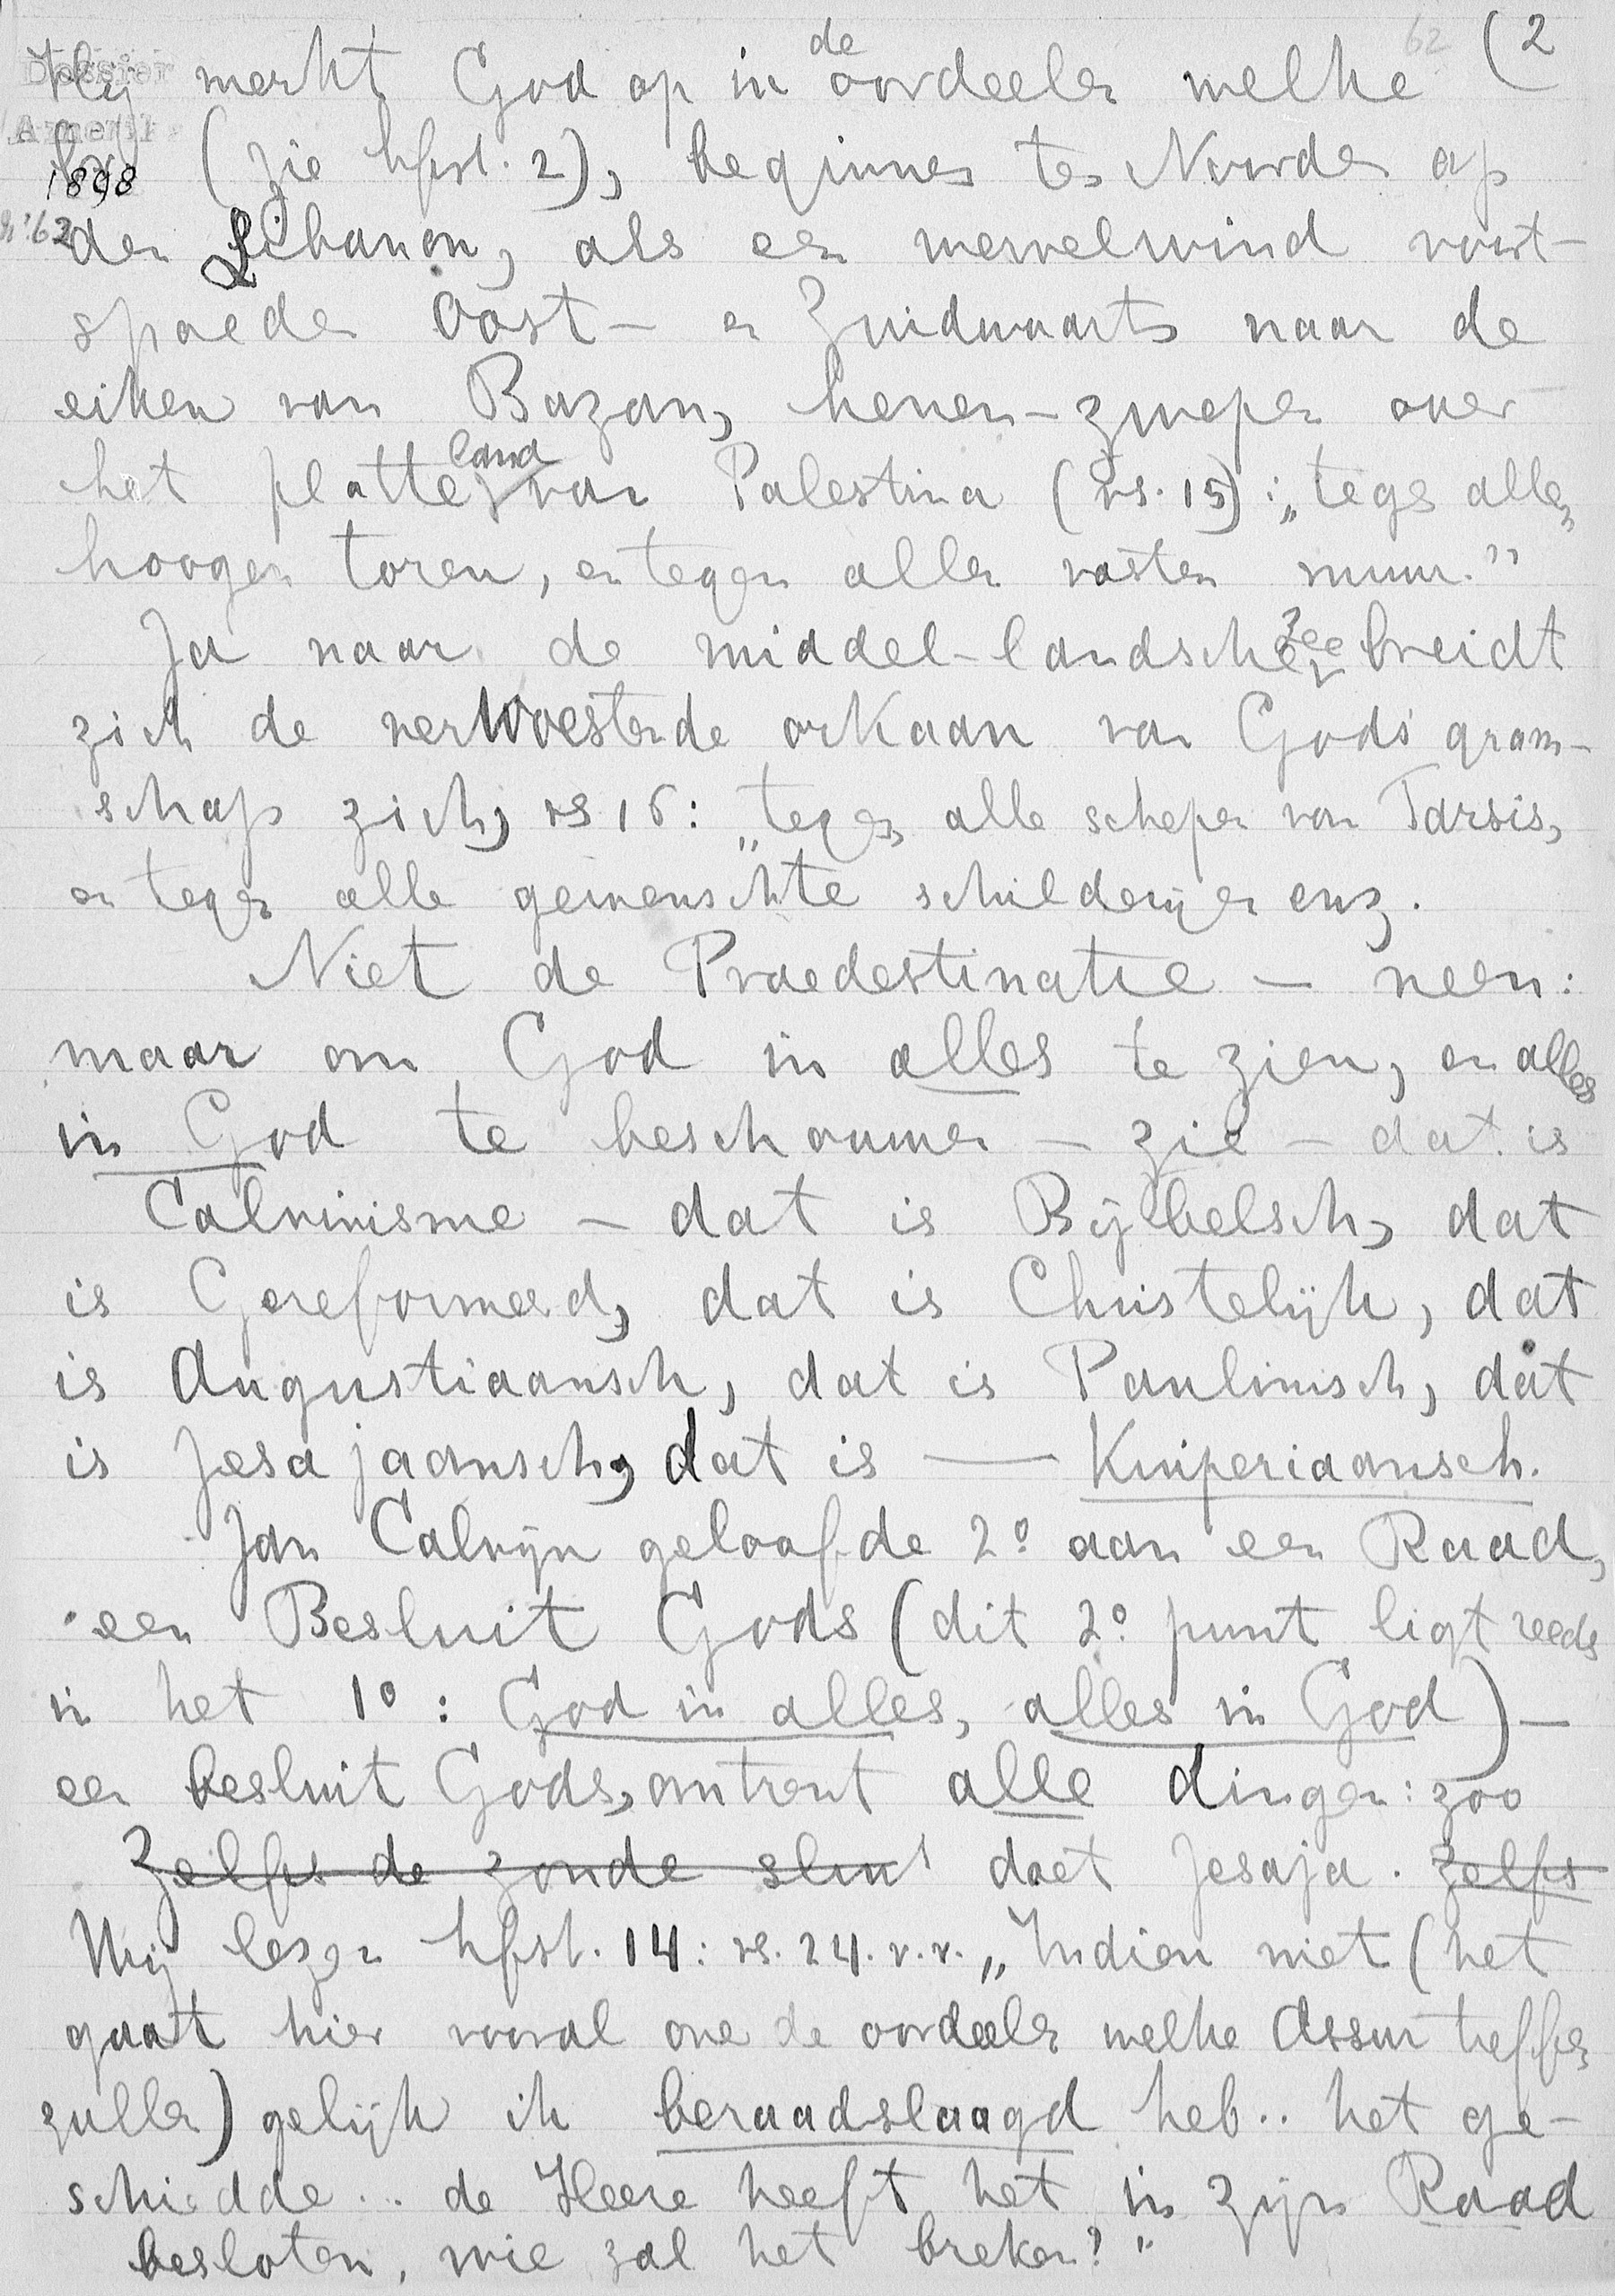 62 (2
Dossier
Amerik
1898
n: 62
Hij merkt God op in de oordeelen welke
hij (zie hfst. 2), beginnen ten Noorden op
den Libanon, als een wervelwind voort-
spoeden Oost- en Zuidwaarts naar de
eiken van Bazan, henen-zwepen over
het platte land van Palestina (vs. 15): „tegen allen
hoogen toren, en tegen allen vasten muur."
Ja naar de middel-landsche zee breidt
zich de verwoestende orkaan van Gods gram-
schap zich, vs 16: „tegen alle schepen van Tarsis,
en tegen alle gewenschte schilderijen enz.
Niet de Praedestinatie — neen:
maar om God in alles te zien, en alles
in God te beschouwen — zie — dat is
Calvinisme — dat is Bijbelsch, dat
is Gereformeerd, dat is Christelijk, dat
is Augustiaansch, dat is Paulinisch, dat
is Jesajaansch, dat is — Kuiperiaansch.
Jan Calvijn geloofde 2º aan een Raad,
een Besluit Gods (dit 2º punt ligt reeds
in het 1º: God in alles, alles in God) —
een besluit Gods, omtrent alle dingen: zoo
Zelfs de zonde slui doet Jesaja. Zelfs
Wij lezen hfst. 14: vs. 24. v.v. „Indien niet (het
gaat hier vooral over de oordeelen welke Assur treffen
zullen) gelijk ik beraadslaagd heb.. het ge-
schiedde... de Heere heeft het in zijn Raad
besloten, wie zal het breken?"